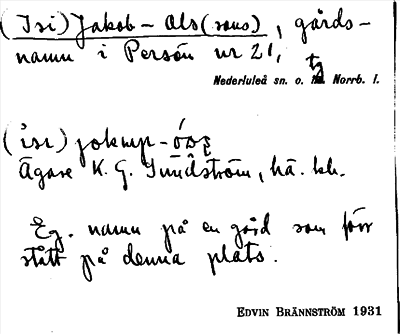 (Isi) Jakob-Ols(sons), gårds-
namn i Persön nr 21,
Nederluleå sn. o. tg Norrb. l.
Ägare K. G. Sundström, hä. kh.
Eg. namn på en gård som förr
stått på denna plats.
EDVIN BRÄNNSTRÖM 1931